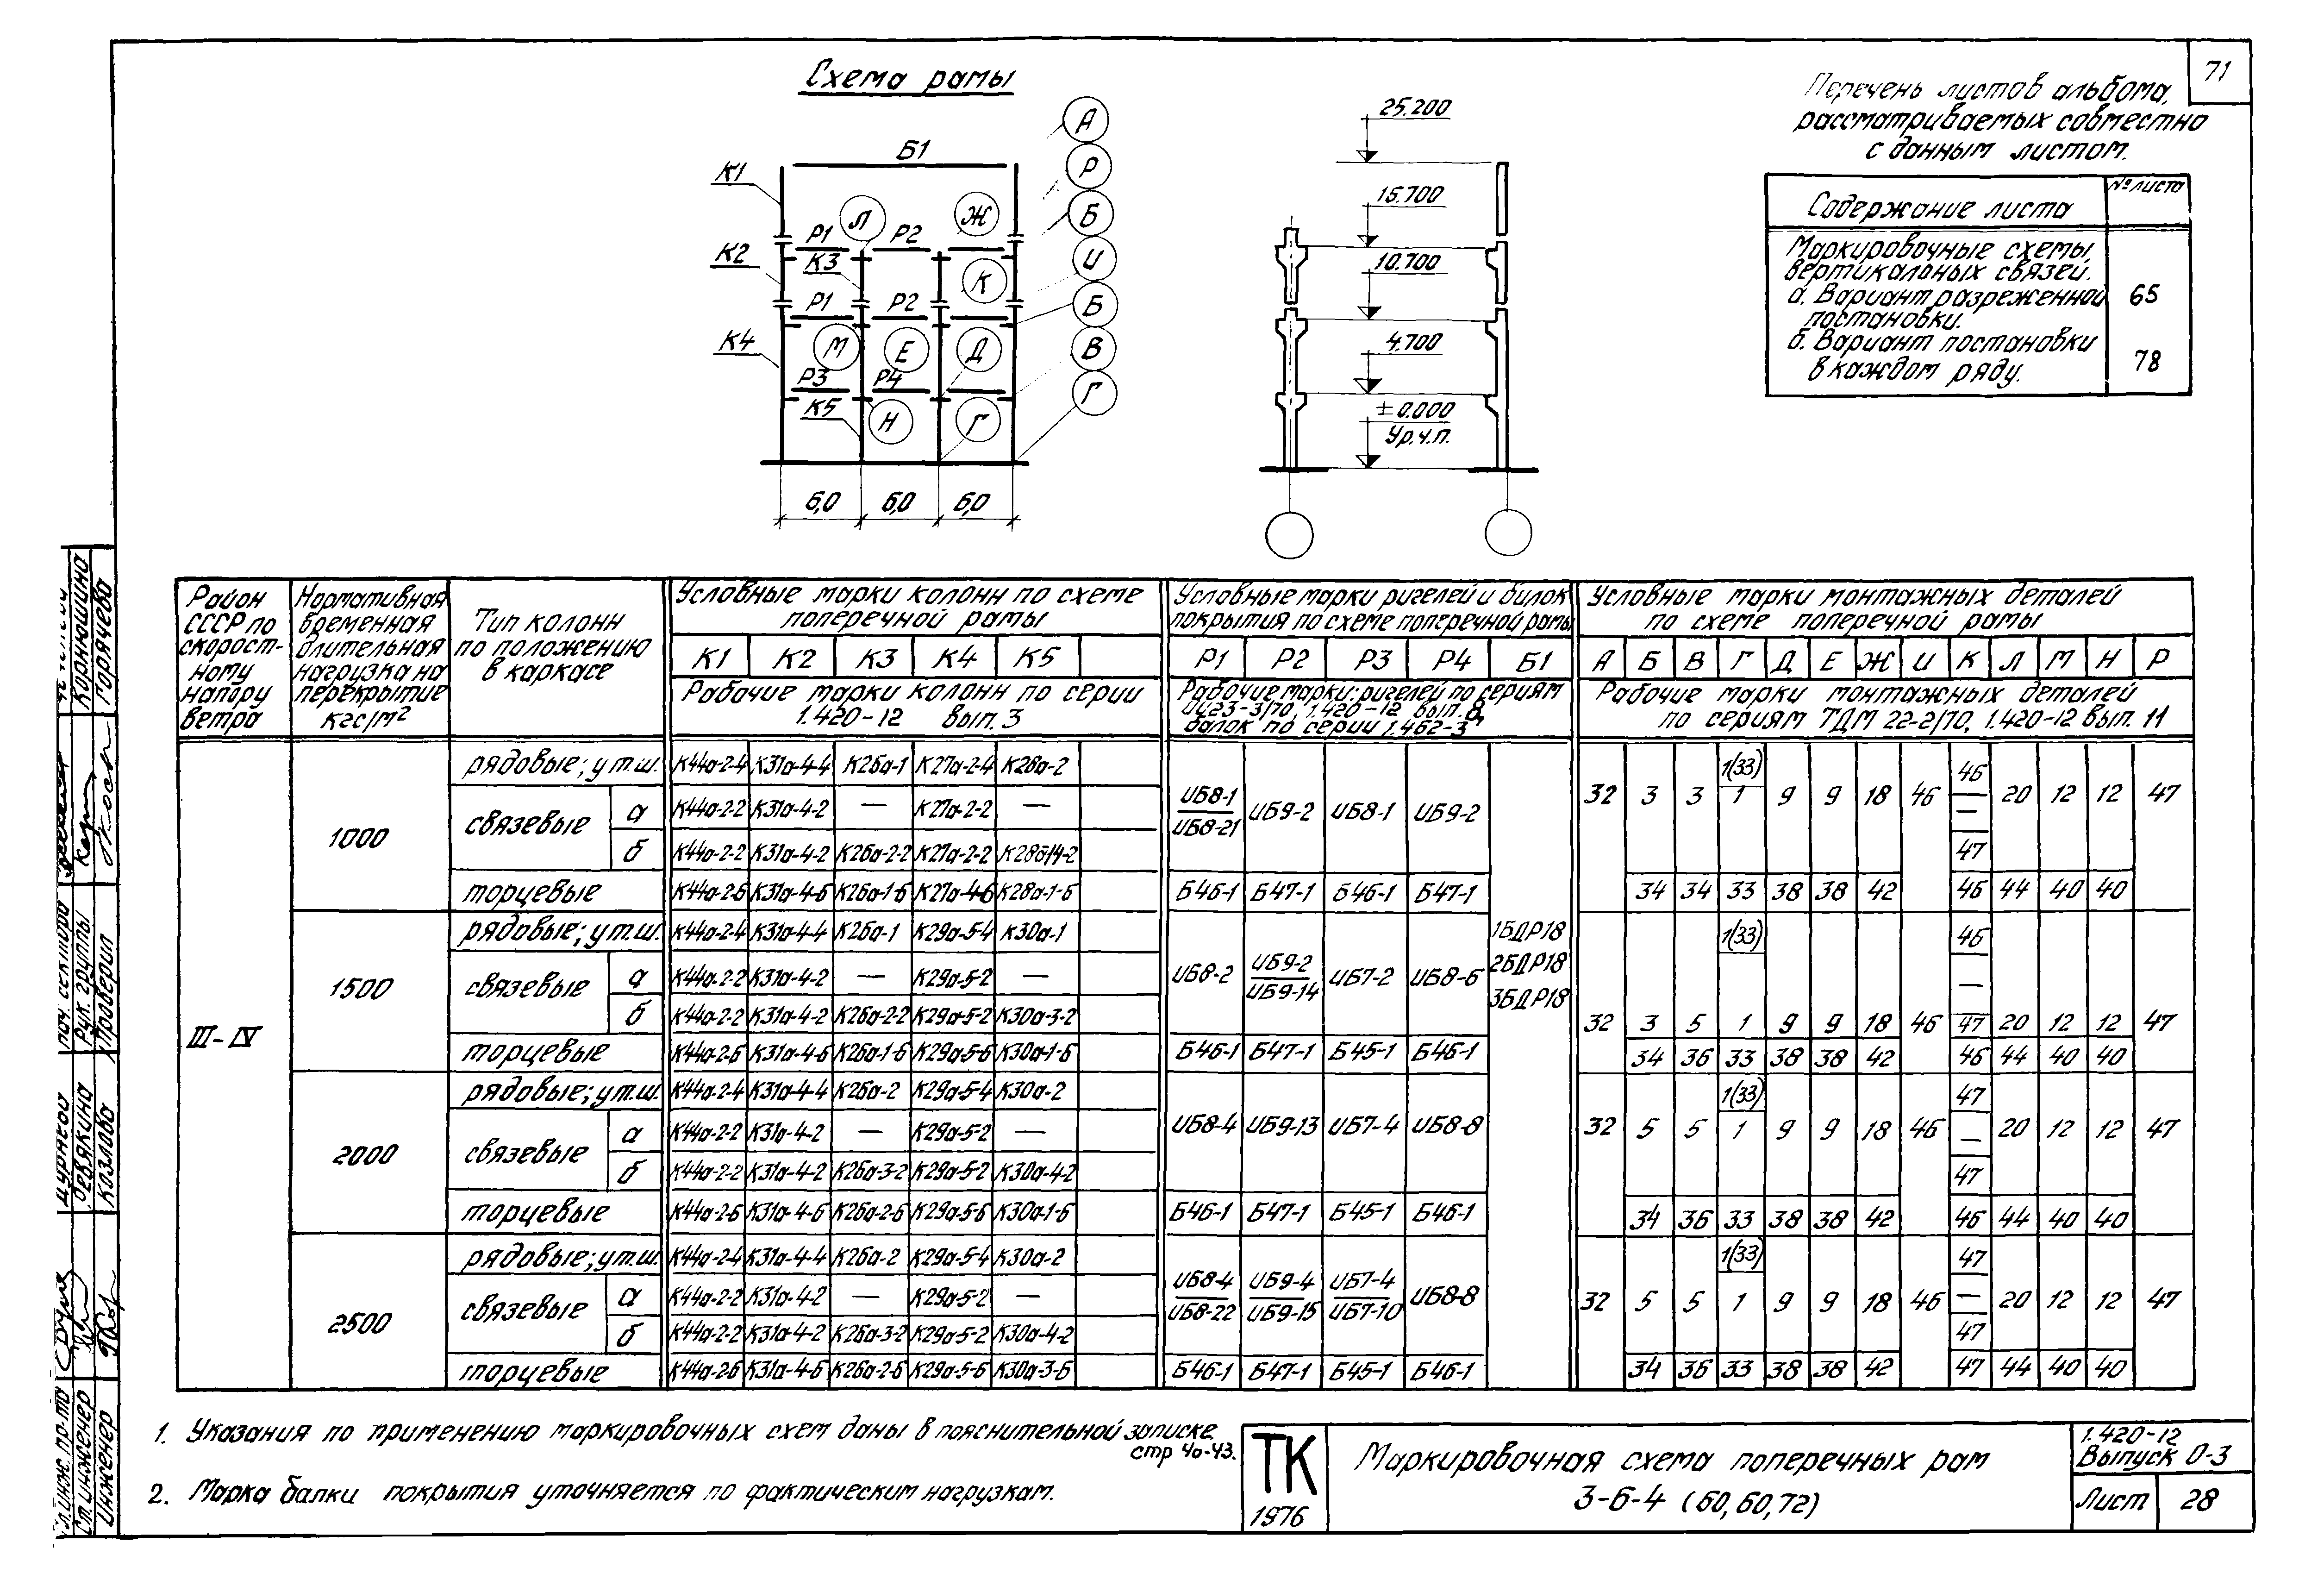 71
Схема рамы
Перечень листов альбома,
рассматриваемых совместно
с данным листом.
Содержание листа № листа
Маркировочные схемы
вертикальных связей.
а. Вариант разреженной 65
постановки.
б. Вариант постановки 78
в каждом ряду.
Б1
К1
К2
К3
К4
К5
Р1 Р2
Р1 Р2
Р3 Р4
Л Ж
К
М Е Д
Н Г
А
Р
Б
И
Б
В
Г
6,0 6,0 6,0
25.200
15.700
10.700
4.700
±0.000
Ур.ч.п.
Район СССР по скоростному напору ветра
Нормативная временная длительная нагрузка на перекрытие кгс/м²
Тип колонн по положению в каркасе
Условные марки колонн по схеме поперечной рамы
К1 К2 К3 К4 К5
Рабочие марки колонн по серии 1.420-12 вып. 3
Условные марки ригелей и балок покрытия по схеме поперечной рамы
Р1 Р2 Р3 Р4 Б1
Рабочие марки: ригелей по сериям ИИ23-3/70, 1.420-12 вып. 8, балок по серии 1.462-3
Условные марки монтажных деталей по схеме поперечной рамы
А Б В Г Д Е Ж И К Л М Н Р
Рабочие марки монтажных деталей по сериям ТДМ 22-2/70, 1.420-12 вып. 11
III-IV
1000
рядовые; у т.ш. К44а-2-4 К31а-4-4 К26а-1 К27а-2-4 К28а-2
связевые а К44а-2-2 К31а-4-2 — К27а-2-2 —
б К44а-2-2 К31а-4-2 К26а-2-2 К27а-2-2 К28б14-2
торцевые К44а-2-6 К31а-4-6 К26а-1-6 К27а-4-6 К28а-1-6
ИБ8-1 / ИБ8-21 ИБ9-2 ИБ8-1 ИБ9-2
Б46-1 Б47-1 Б46-1 Б47-1
32 3 3 1(33) 1 9 9 18 46 46 — 47 20 12 12 47
34 34 33 38 38 42 46 44 40 40
1500
рядовые; у т.ш. К44а-2-4 К31а-4-4 К26а-1 К29а-5-4 К30а-1
связевые а К44а-2-2 К31а-4-2 — К29а-5-2 —
б К44а-2-2 К31а-4-2 К26а-2-2 К29а-5-2 К30а-3-2
торцевые К44а-2-6 К31а-4-6 К26а-1-6 К29а-5-6 К30а-1-6
ИБ8-2 ИБ9-2 / ИБ9-14 ИБ7-2 ИБ8-6
Б46-1 Б47-1 Б45-1 Б46-1
1БДР18
2БДР18
3БДР18
32 3 5 1(33) 1 9 9 18 46 46 — 47 20 12 12 47
34 36 33 38 38 42 46 44 40 40
2000
рядовые; у т.ш. К44а-2-4 К31а-4-4 К26а-2 К29а-5-4 К30а-2
связевые а К44а-2-2 К31а-4-2 — К29а-5-2 —
б К44а-2-2 К31а-4-2 К26а-3-2 К29а-5-2 К30а-4-2
торцевые К44а-2-6 К31а-4-6 К26а-2-6 К29а-5-6 К30а-1-6
ИБ8-4 ИБ9-13 ИБ7-4 ИБ8-8
Б46-1 Б47-1 Б45-1 Б46-1
32 5 5 1(33) 1 9 9 18 46 47 — 47 20 12 12 47
34 36 33 38 38 42 46 44 40 40
2500
рядовые; у т.ш. К44а-2-4 К31а-4-4 К26а-2 К29а-5-4 К30а-2
связевые а К44а-2-2 К31а-4-2 — К29а-5-2 —
б К44а-2-2 К31а-4-2 К26а-3-2 К29а-5-2 К30а-4-2
торцевые К44а-2-6 К31а-4-6 К26а-2-6 К29а-5-6 К30а-3-6
ИБ8-4 / ИБ8-22 ИБ9-4 / ИБ9-15 ИБ7-4 / ИБ7-10 ИБ8-8
Б46-1 Б47-1 Б45-1 Б46-1
32 5 5 1(33) 1 9 9 18 46 47 — 47 20 12 12 47
34 36 33 38 38 42 47 44 40 40
1. Указания по применению маркировочных схем даны в пояснительной записке
стр 40-43.
2. Марка балки покрытия уточняется по фактическим нагрузкам.
ТК
1976
Маркировочная схема поперечных рам
3-6-4 (60,60,72)
1.420-12
Выпуск 0-3
Лист 28
нач. сектора
Рук. группы Корнюшина
Проверил Горячева
Ст. инженер Ревякина
Инженер Козлова